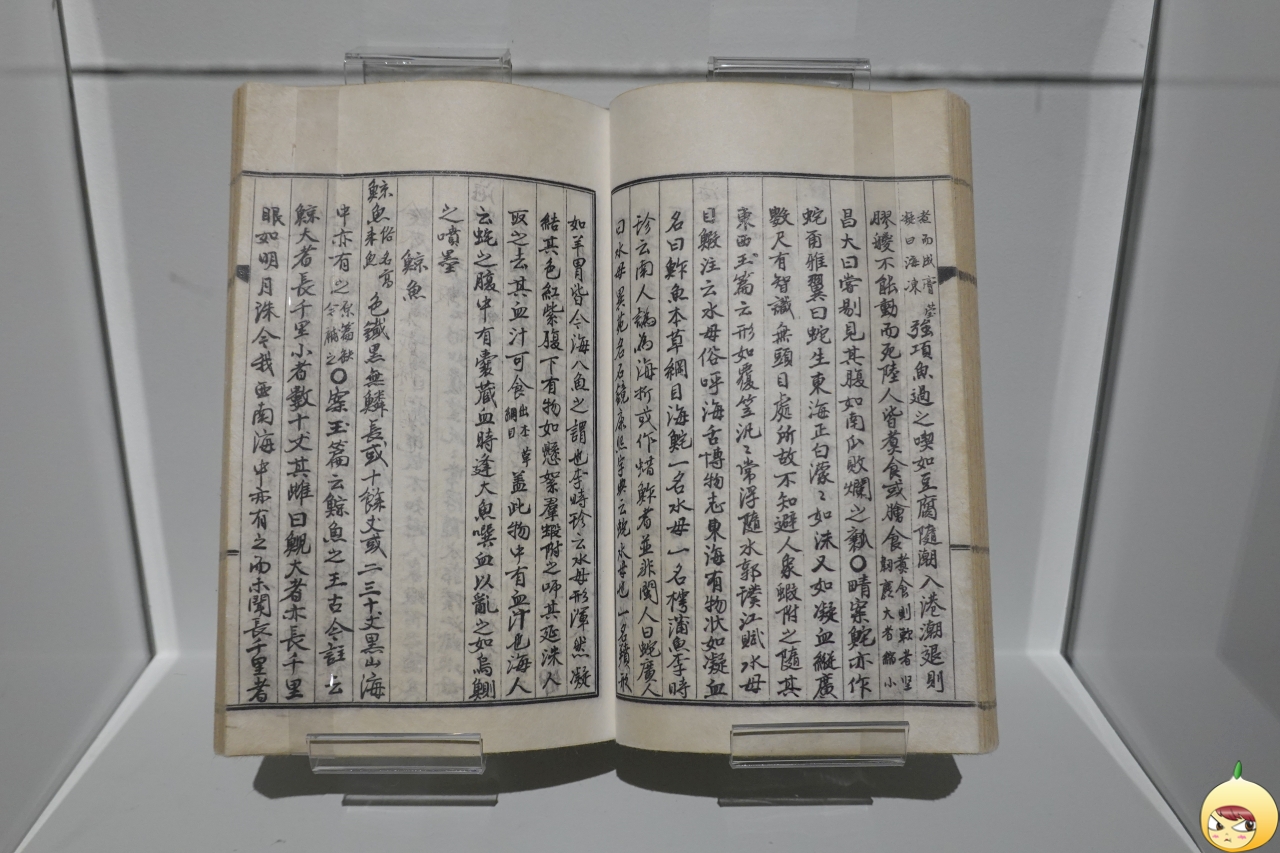 煮而成膏
凝曰海凍
強項魚過之喫如豆腐隨潮入港潮退則
膠艐不能動而死陸人皆煑食或膾食
煑食則軟者堅
韌麁大者縮小
昌大曰嘗剔見其腹如南瓜敗爛之瓤〇晴案鮀亦作
蛇爾雅翼曰蛇生東海正白濛〻如沫又如凝血縱廣
數尺有智識無頭目處所故不知避人衆蝦附之隨其
東西玉篇云形如覆笠汎〻常浮隨水郭璞江賦水母
目鰕注云水母俗呼海舌博物志東海有物狀如凝血
名曰鮓魚本草綱目海鮀一名水母一名樗蒲魚李時
珍云南人訛為海折或作蜡鮓者並非閩人曰蛇廣人
曰水母異苑名石鏡康熙字典云蛇水母也一名
形
如羊胃皆今海八魚之謂也李時珍云水母形渾然凝
結其色紅紫腹下有物如懸絮羣蝦附之咂其涎沫人
取之去其血汁可食
出本草
綱目
盖此物中有血汁也海人
云蛇之腹中有囊蔵血時逢大魚噀血以亂之如烏鰂
之噴墨
鯨魚
鯨魚
俗名高
来魚
色鐵黑無鱗長或十餘丈或二三十丈黑山海
中亦有之
原篇缺
今補之
〇案玉篇云鯨魚之王古今註云
鯨大者長千里小者數十丈其雌曰鯢大者亦長千里
眼如明月洙今我西南海中亦有之而未聞長千里者